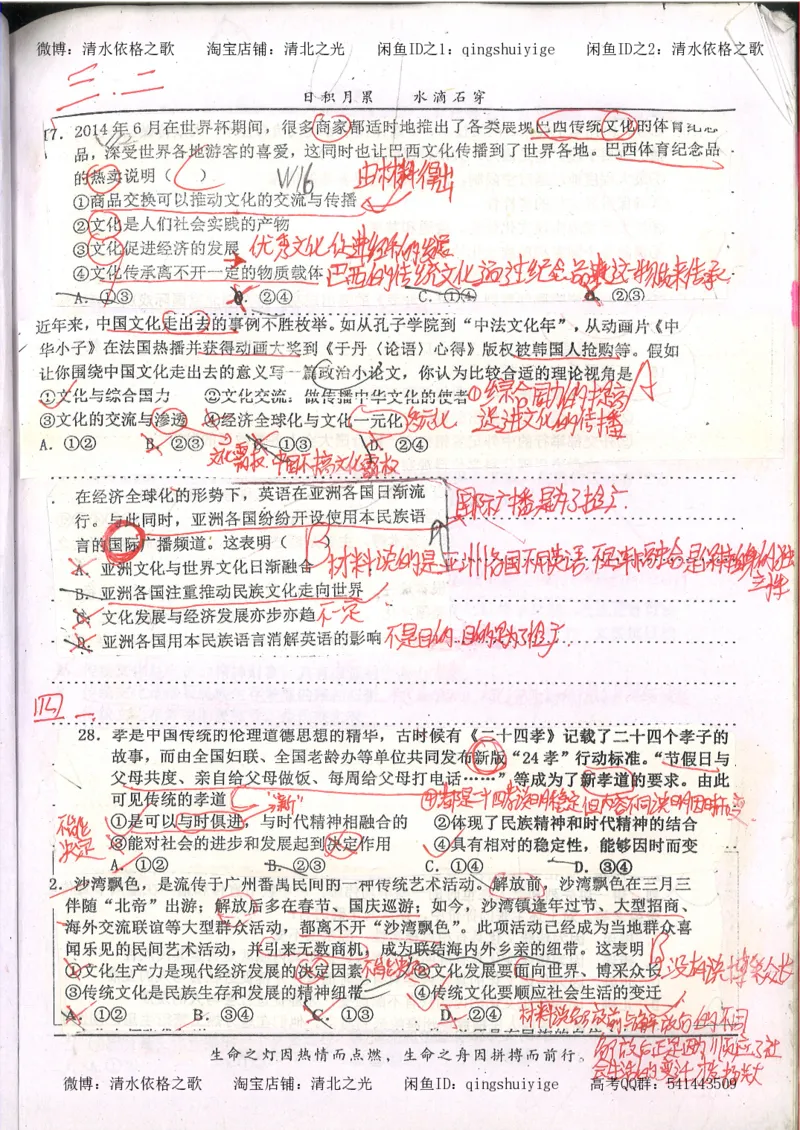 微博：清水依格之歌 淘宝店铺：清北之光 闲鱼ID之1：qingshuiyige 闲鱼ID之2：清水依格之歌
三.二
日积月累 水滴石穿
17. 2014年6月在世界杯期间，很多商家都适时地推出了各类展现巴西传统文化的体育纪念
品，深受世界各地游客的喜爱，这同时也让巴西文化传播到了世界各地。巴西体育纪念品
的热卖说明（ ） C W16 由材料得出
①商品交换可以推动文化的交流与传播
②文化是人们社会实践的产物
③文化促进经济的发展 优秀文化促进经济的发展
④文化传承离不开一定的物质载体 巴西的传统文化通过纪念品载这物质来传承
A. ①③ B. ②④ C. ①④ D. ②③
近年来，中国文化走出去的事例不胜枚举。如从孔子学院到“中法文化年”，从动画片《中
华小子》在法国热播并获得动画大奖到《于丹〈论语〉心得》版权被韩国人抢购等。假如
让你围绕中国文化走出去的意义写一篇政治小论文，你认为比较合适的理论视角是 A
①文化与综合国力 ②文化交流：做传播中华文化的使者 ①综合国力的提高
③文化的交流与渗透 ④经济全球化与文化一元化 多元化 促进文化的传播
A. ①② B. ②③ C. ①③ D. ②④
文化霸权 中国不搞文化霸权
在经济全球化的形势下，英语在亚洲各国日渐流
行。与此同时，亚洲各国纷纷开设使用本民族语 国际广播是为了推广
言的国际广播频道。这表明（ ） B
A. 亚洲文化与世界文化日渐融合 材料说的是亚洲各国不用英语
B. 亚洲各国注重推动民族文化走向世界
C. 文化发展与经济发展亦步亦趋 不一定
D. 亚洲各国用本民族语言消解英语的影响 不是目的.目的是为了推广
四 一.
28. 孝是中国传统的伦理道德思想的精华，古时候有《二十四孝》记载了二十四个孝子的
故事，而由全国妇联、全国老龄办等单位共同发布新版“24孝”行动标准。“节假日与
父母共度、亲自给父母做饭、每周给父母打电话……”等成为了新孝道的要求。由此
可见传统的孝道 C “新” ④都是二十四孝说明稳定 但内容不同说明因时而变
①是可以与时俱进，与时代精神相融合的 ②体现了民族精神和时代精神的结合
不能决定 ③能对社会的进步和发展起到决定作用 ④具有相对的稳定性，能够因时而变
A. ①② B. ②③ C. ①④ D. ③④
2. 沙湾飘色，是流传于广州番禺民间的一种传统艺术活动。解放前，沙湾飘色在三月三
伴随“北帝”出游；解放后多在春节、国庆巡游；如今，沙湾镇逢年过节、大型招商、
海外交流联谊等大型群众活动，都离不开“沙湾飘色”。此项活动已经成为当地群众喜
闻乐见的民间艺术活动，并引来无数商机，成为联结海内外乡亲的纽带。这表明 B
①文化生产力是现代经济发展的决定因素 不能决定 ②文化发展要面向世界、博采众长 没有说博采众长
③传统文化是民族生存和发展的精神纽带 ④传统文化要顺应社会生活的变迁
A. ①② B. ③④ C. ①③ D. ②④ 材料说解放前与解放后的不同
生命之灯因热情而点燃，生命之舟因拼搏而前行。
微博：清水依格之歌 淘宝店铺：清北之光 闲鱼ID：qingshuiyige 高考QQ群：541443509